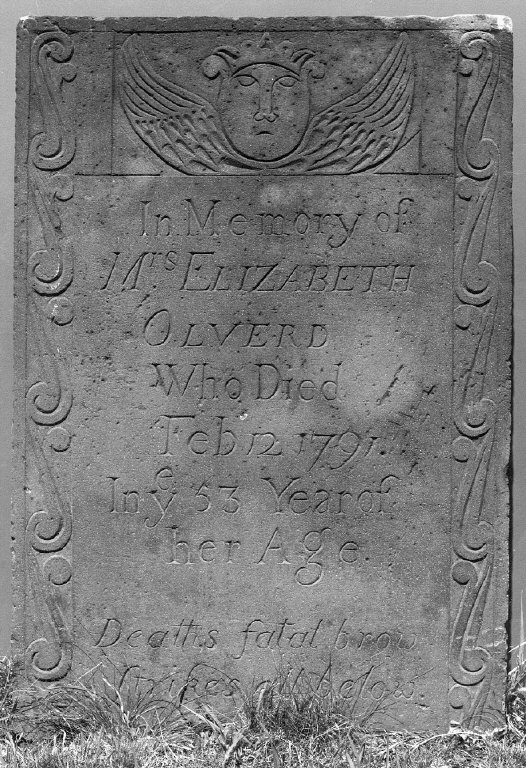 In Memory of
Mrs ELIZABETH
OLVERD
Who Died
Feb 12 1791
In ye 53 Year of
her Age
Deaths fatal brow
Strikes all below